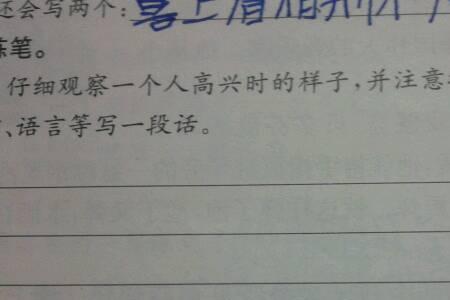 还会写两个:喜上眉梢
练笔。
仔细观察一个人高兴时的样子,并注意
、语言等写一段话。